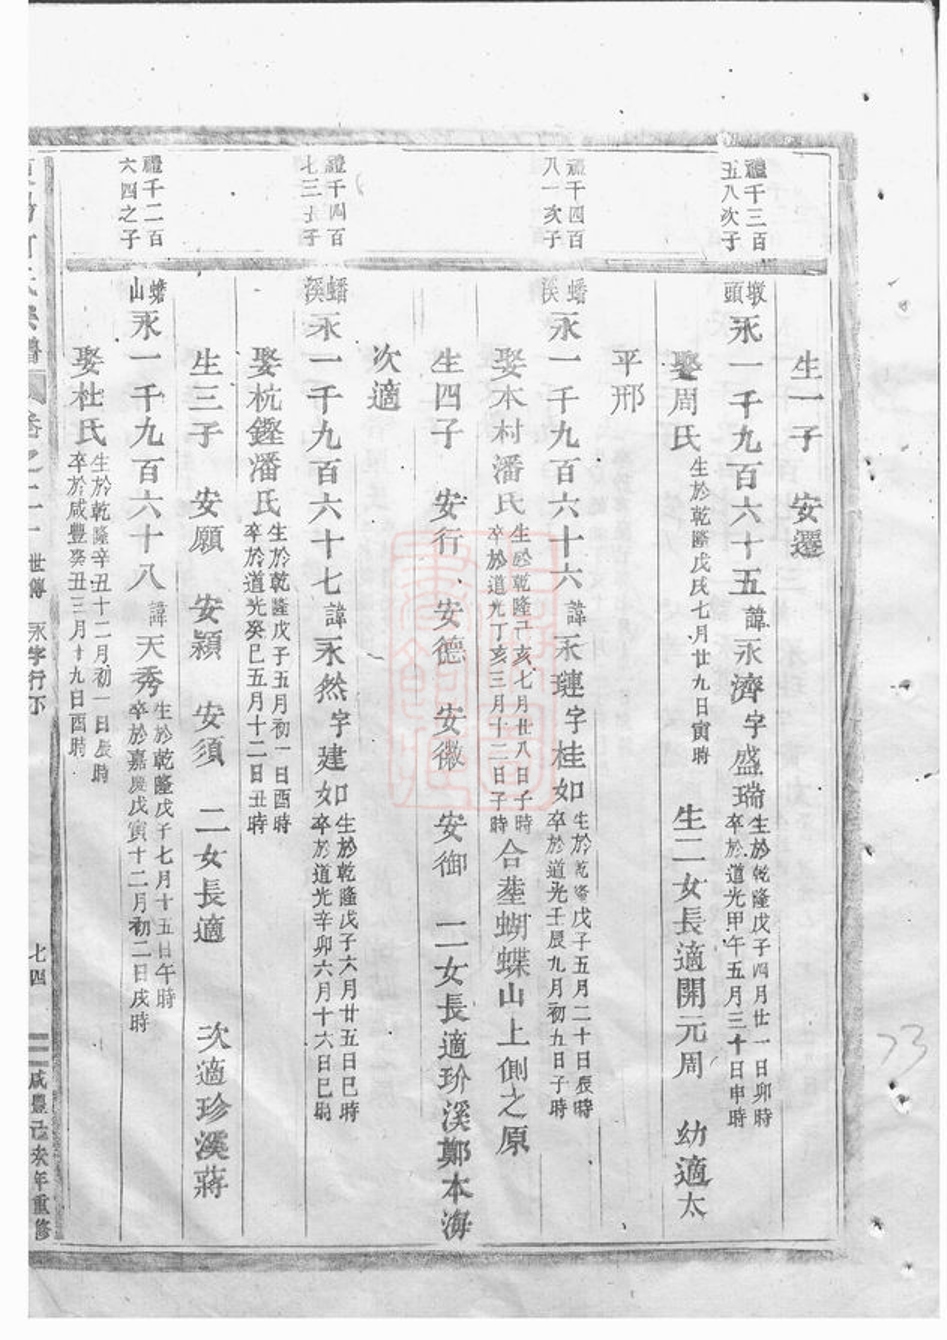 生一子 安遷
禮千三百
五八次子
墩頭 永一千九百六十五 諱永濟 字盛瑞 生於乾隆戊子四月廿一日卯時
卒於道光甲午五月三十日申時
娶周氏 生於乾隆戊戌七月廿九日寅時 生二女長適開元周 幼適太
平邢
禮千四百
八一次子
蟠溪 永一千九百六十六 諱永璉 字桂如 生於乾隆戊子五月二十日辰時
卒於道光壬辰九月初九日子時
娶本村潘氏 生於乾隆 亥七月廿八日子時
卒於道光丁亥三月十二日子時 合塟蝴蝶山上側之原
生四子 安行 安德 安徽 安御 二女長適玠溪鄭本海
次適
禮千四百
七三 子
蟠溪 永一千九百六十七 諱永然 字建如 生於乾隆戊子六月廿五日巳時
卒於道光辛卯六月十六日巳時
娶杭鏗潘氏 生於乾隆戊子五月初一日酉時
卒於道光癸巳五月十二日丑時
生三子 安願 安潁 安須 二女長適 次適珍溪蔣
禮千二百
六四之子
蟾山 永一千九百六十八 諱天秀 生於乾隆戊子七月十五日午時
卒於嘉慶戊寅十二月初二日戌時
娶杜氏 生於乾隆辛丑十二月初一日辰時
卒於咸豐癸丑三月十九日酉時
世傳 永字行下
七四
咸豐己亥年重修
73